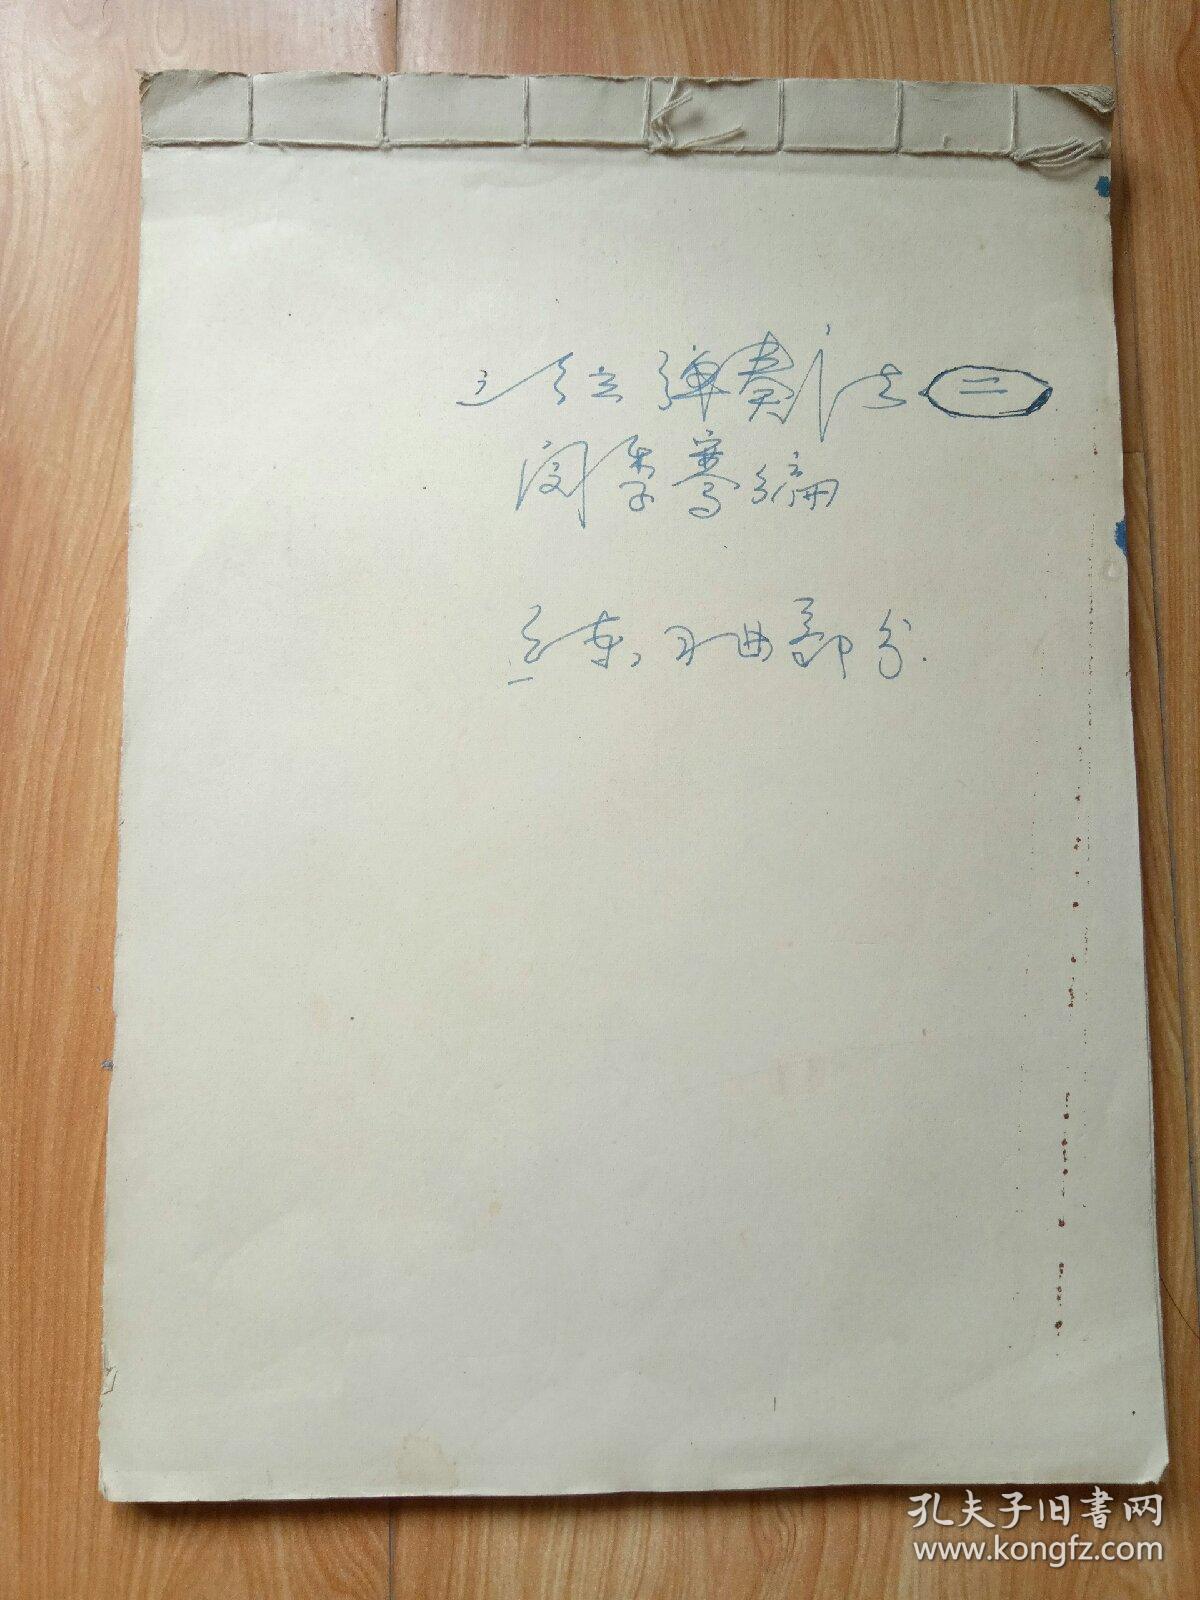 三弦弹奏法 二
闵季骞编
三弦习曲部分
孔夫子旧书网
www.kongfz.com